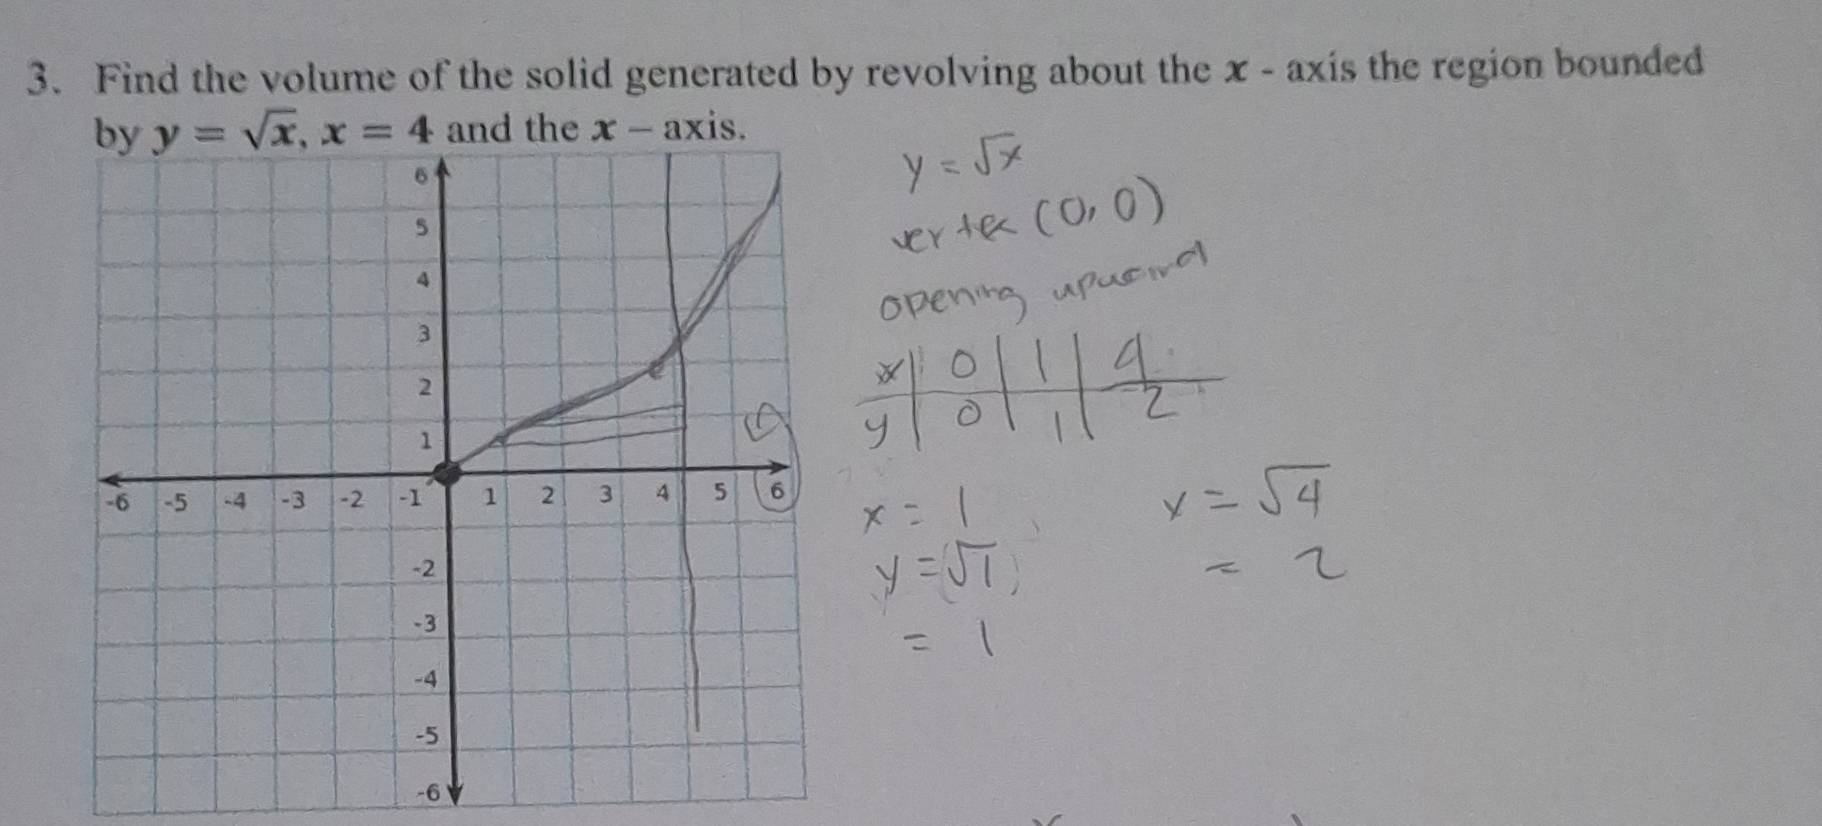 3. Find the volume of the solid generated by revolving about the x - axis the region bounded
by y = √x, x = 4 and the x – axis.
y = √x
vertex (0, 0)
opening upward
x | 0 | 1 | 4
y | 0 | 1 | 2
x = 1
y = √1
= 1
y = √4
= 2
6
5
4
3
2
1
-6 -5 -4 -3 -2 -1 1 2 3 4 5 6
-2
-3
-4
-5
-6